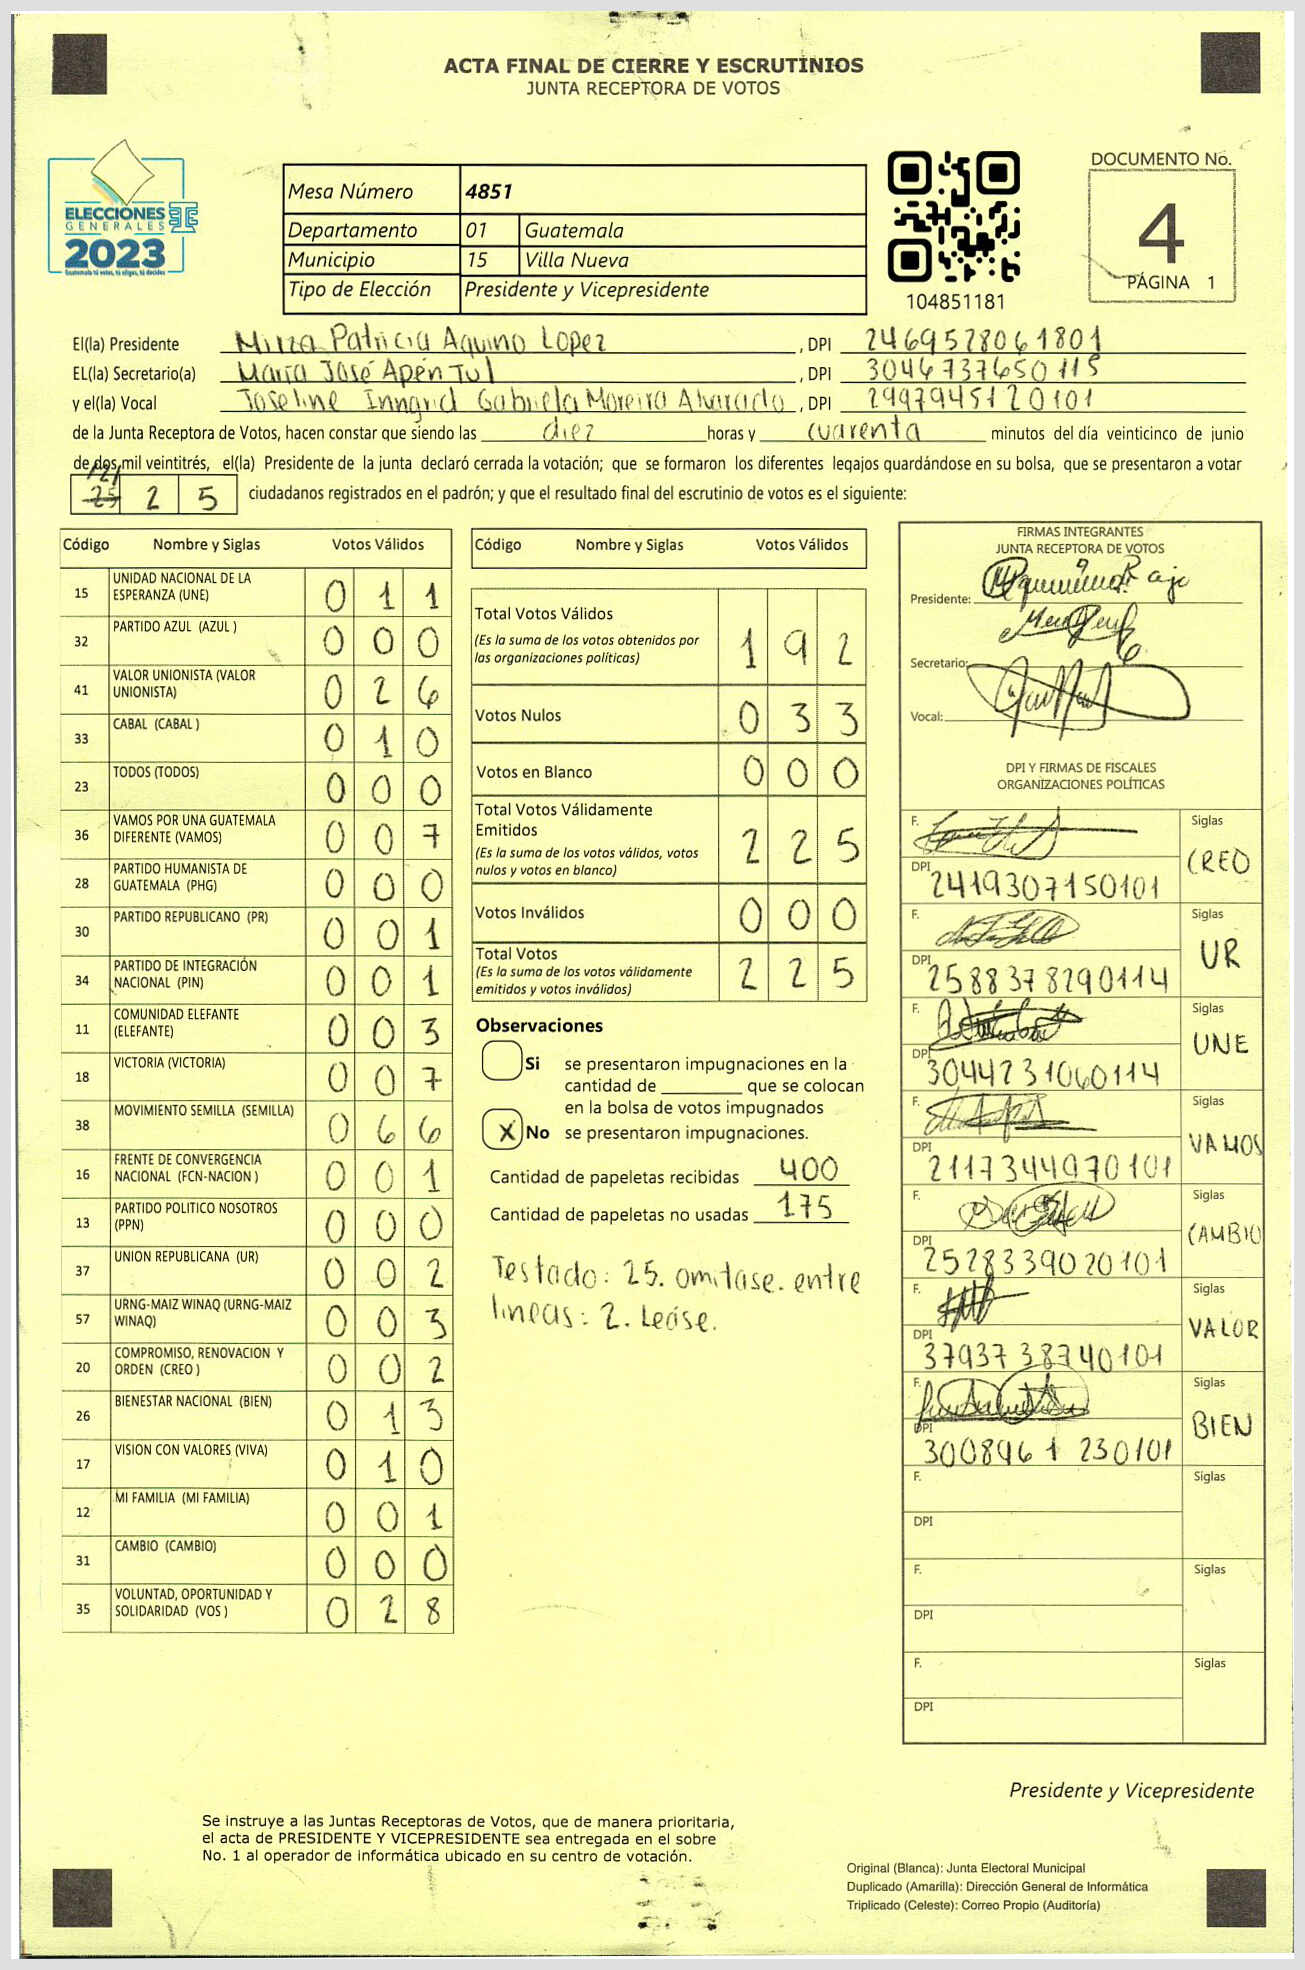 ACTA FINAL DE CIERRE Y ESCRUTINIOS
JUNTA RECEPTORA DE VOTOS
ELECCIONES
GENERALES
2023
Guatemala tú votas, tú eliges, tú decides
Mesa Número 4851
Departamento 01 Guatemala
Municipio 15 Villa Nueva
Tipo de Elección Presidente y Vicepresidente
104851181
DOCUMENTO No.
4
PÁGINA 1
El(la) Presidente Mirza Patricia Aquino Lopez, DPI 2469528061801
EL(la) Secretario(a) María José Apén Tul, DPI 3046737650115
y el(la) Vocal Joseline Inngrid Gabriela Moreira Alvarado, DPI 2997945120101
de la Junta Receptora de Votos, hacen constar que siendo las diez horas y cuarenta minutos del día veinticinco de junio
de dos mil veintitrés, el(la) Presidente de la junta declaró cerrada la votación; que se formaron los diferentes legajos guardándose en su bolsa, que se presentaron a votar
/2/ 25 2 5 ciudadanos registrados en el padrón; y que el resultado final del escrutinio de votos es el siguiente:
Código Nombre y Siglas Votos Válidos
15 UNIDAD NACIONAL DE LA ESPERANZA (UNE) 0 1 1
32 PARTIDO AZUL (AZUL ) 0 0 0
41 VALOR UNIONISTA (VALOR UNIONISTA) 0 2 6
33 CABAL (CABAL ) 0 1 0
23 TODOS (TODOS) 0 0 0
36 VAMOS POR UNA GUATEMALA DIFERENTE (VAMOS) 0 0 7
28 PARTIDO HUMANISTA DE GUATEMALA (PHG) 0 0 0
30 PARTIDO REPUBLICANO (PR) 0 0 1
34 PARTIDO DE INTEGRACIÓN NACIONAL (PIN) 0 0 1
11 COMUNIDAD ELEFANTE (ELEFANTE) 0 0 3
18 VICTORIA (VICTORIA) 0 0 7
38 MOVIMIENTO SEMILLA (SEMILLA) 0 6 6
16 FRENTE DE CONVERGENCIA NACIONAL (FCN-NACION ) 0 0 1
13 PARTIDO POLITICO NOSOTROS (PPN) 0 0 0
37 UNION REPUBLICANA (UR) 0 0 2
57 URNG-MAIZ WINAQ (URNG-MAIZ WINAQ) 0 0 3
20 COMPROMISO, RENOVACION Y ORDEN (CREO ) 0 0 2
26 BIENESTAR NACIONAL (BIEN) 0 1 3
17 VISION CON VALORES (VIVA) 0 1 0
12 MI FAMILIA (MI FAMILIA) 0 0 1
31 CAMBIO (CAMBIO) 0 0 0
35 VOLUNTAD, OPORTUNIDAD Y SOLIDARIDAD (VOS ) 0 2 8
Código Nombre y Siglas Votos Válidos
Total Votos Válidos 1 9 2
(Es la suma de los votos obtenidos por las organizaciones políticas)
Votos Nulos 0 3 3
Votos en Blanco 0 0 0
Total Votos Válidamente Emitidos 2 2 5
(Es la suma de los votos válidos, votos nulos y votos en blanco)
Votos Inválidos 0 0 0
Total Votos 2 2 5
(Es la suma de los votos válidamente emitidos y votos inválidos)
Observaciones
Si se presentaron impugnaciones en la
cantidad de ________ que se colocan
en la bolsa de votos impugnados
X No se presentaron impugnaciones.
Cantidad de papeletas recibidas 400
Cantidad de papeletas no usadas 175
Testado: 25. omitase. entre
lineas: 2. Lease.
FIRMAS INTEGRANTES
JUNTA RECEPTORA DE VOTOS
Presidente:
Secretario:
Vocal:
DPI Y FIRMAS DE FISCALES
ORGANIZACIONES POLÍTICAS
F. Siglas
DPI 2419307150101 CREO
F. Siglas
DPI 2588378290114 UR
F. Siglas
DPI 3044231060114 UNE
F. Siglas
DPI 2117344970101 VAMOS
F. Siglas
DPI 2528339020101 CAMBIO
F. Siglas
DPI 3793738740101 VALOR
F. Siglas
DPI 3008961 230101 BIEN
F. Siglas
DPI
F. Siglas
DPI
F. Siglas
DPI
Presidente y Vicepresidente
Se instruye a las Juntas Receptoras de Votos, que de manera prioritaria,
el acta de PRESIDENTE Y VICEPRESIDENTE sea entregada en el sobre
No. 1 al operador de informática ubicado en su centro de votación.
Original (Blanca): Junta Electoral Municipal
Duplicado (Amarilla): Dirección General de Informática
Triplicado (Celeste): Correo Propio (Auditoría)